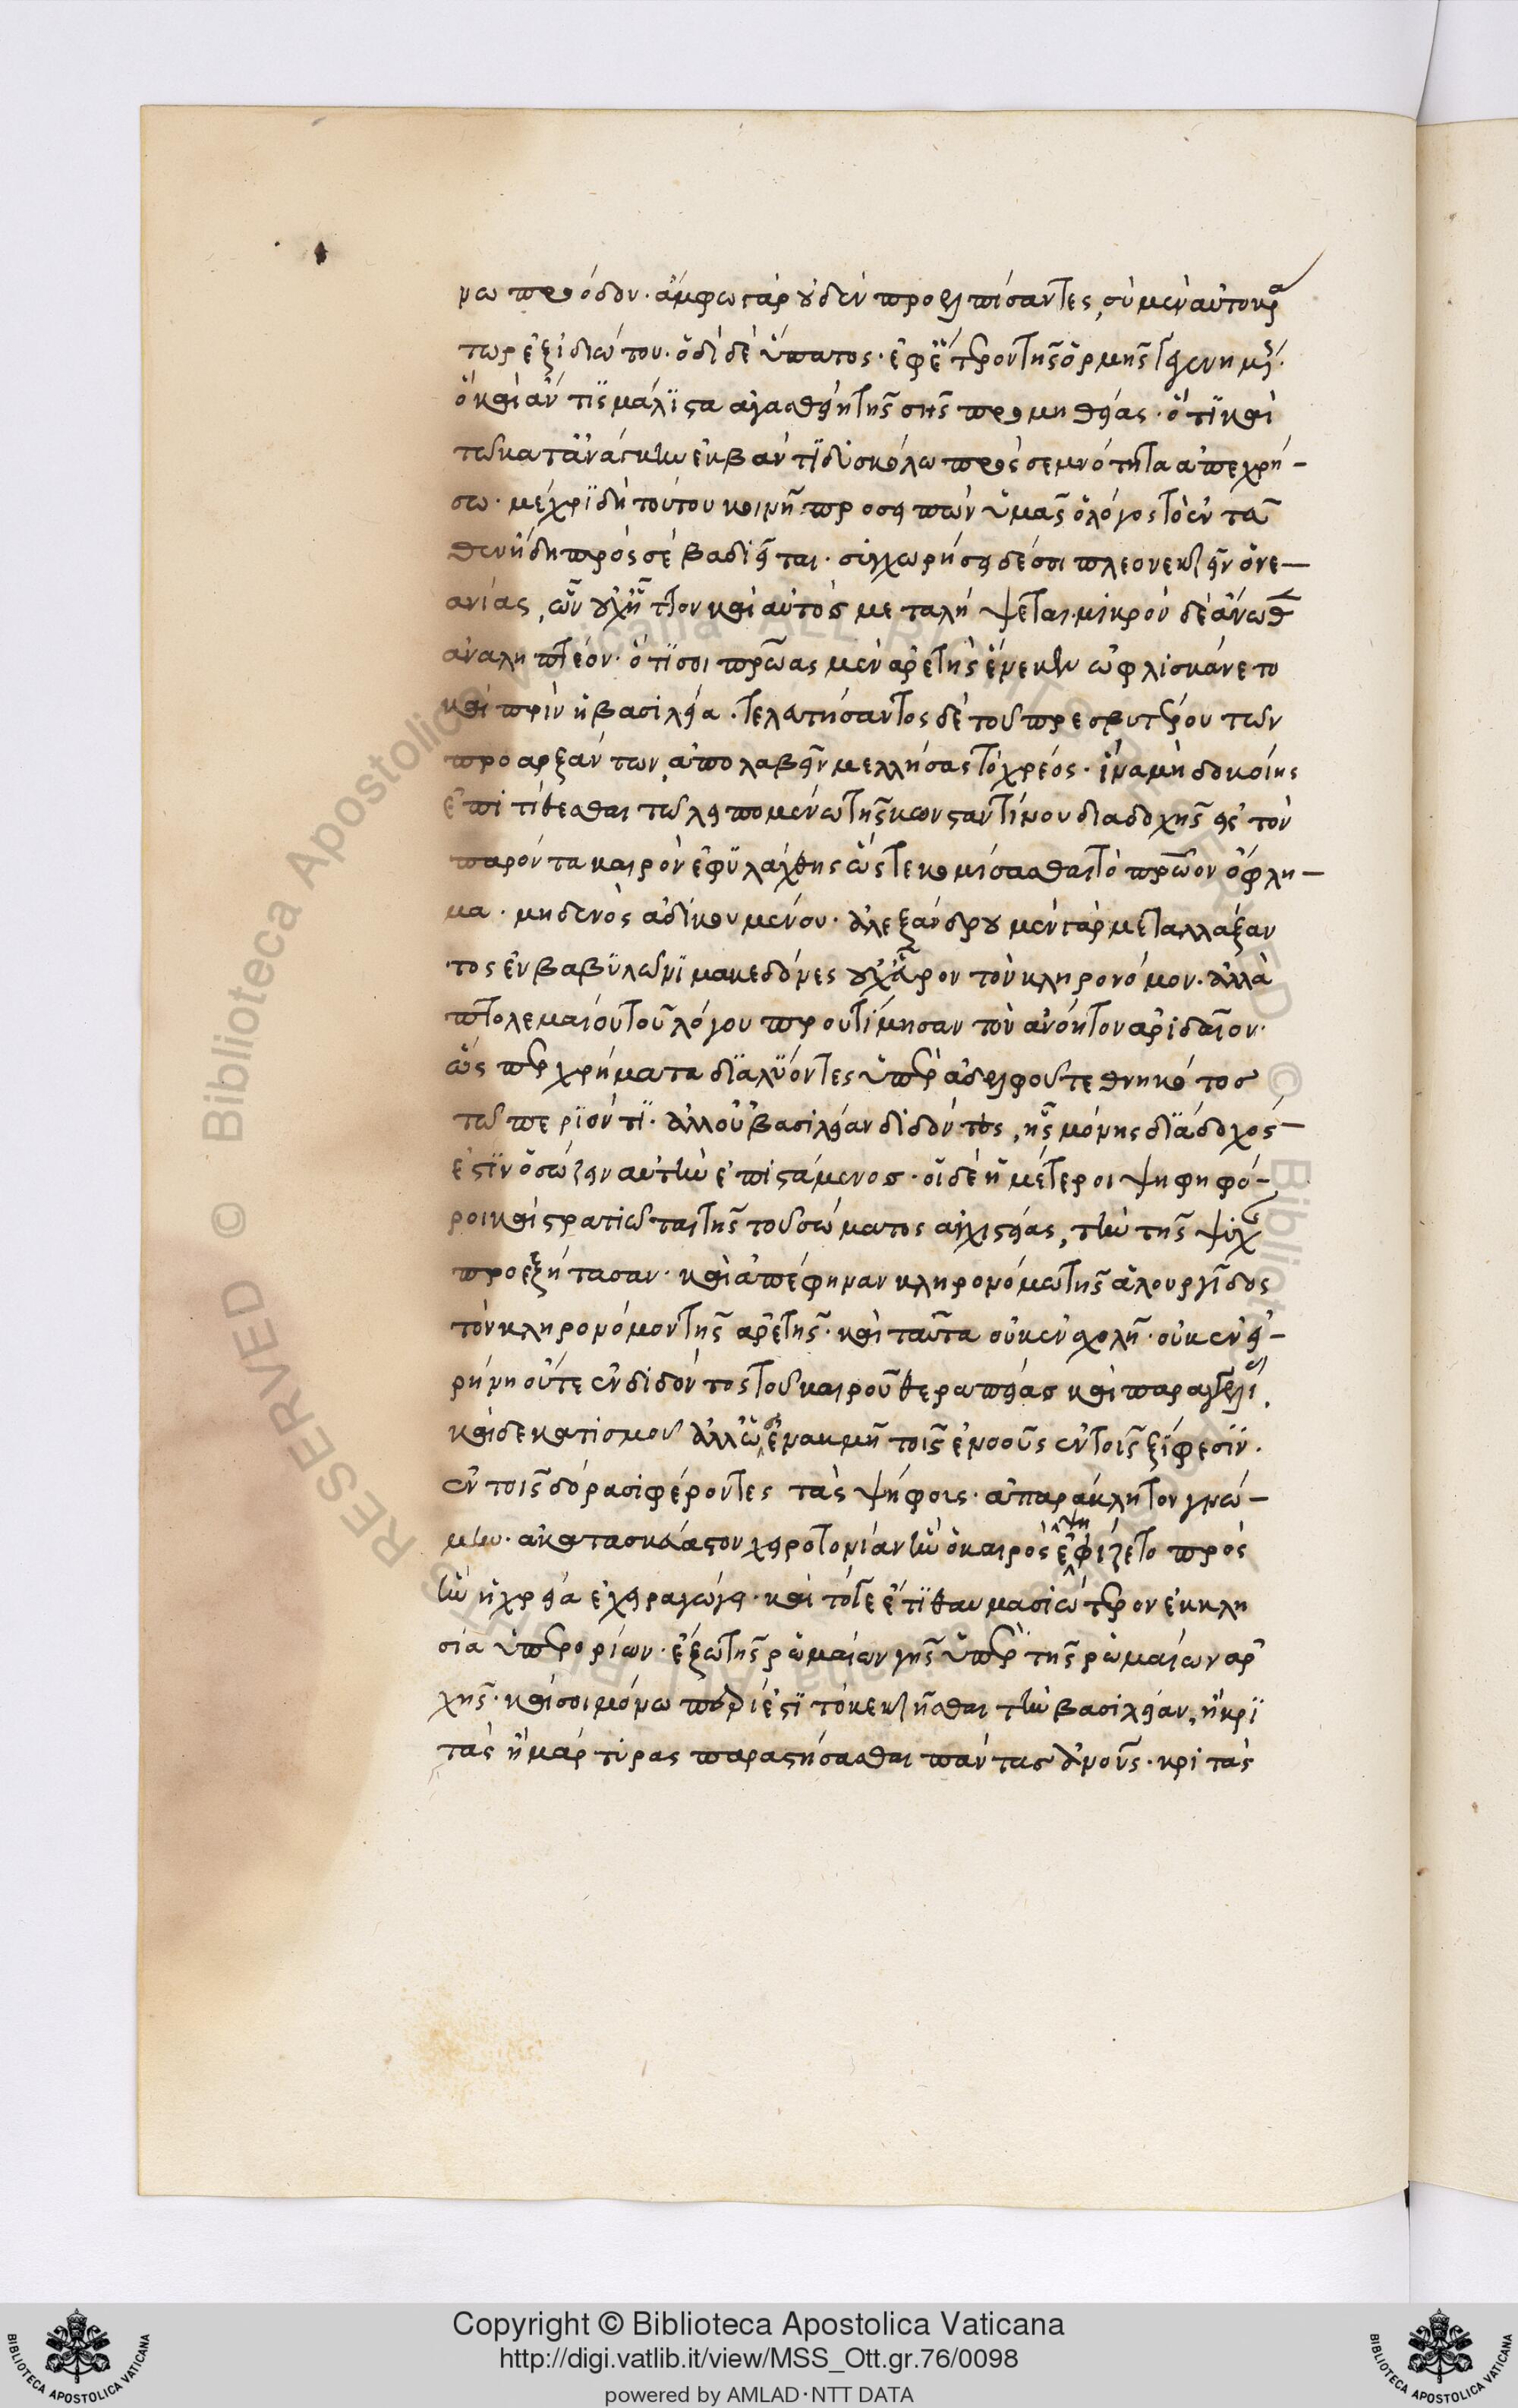 μω πρόοδον· ἄμφω γὰρ οὐδὲν προελπίσαντες, σὺ μὲν αὐτοκρά
τωρ ἐξ ἰδιώτου· ὁδὶ δὲ ὕπατος· ἐφ
ὃ καὶ ἄν τϊς μάλϊστα ἀγασθείη τῆς σῆς προμηθείας· ὅτϊ καὶ
τῶ κατ' ἀνάγκην ἐκβάντϊ δυσκόλω πρὸς σεμνότητα ἀπεχρή–
σω· μέχρϊ δὴ τούτου κοινῆ προσειπὼν ὑμᾶς ὁ λόγος τὸ ἐν ταῦ
θεν ἤδη πρὸς σὲ βαδιεῖται· συγχωρήσει δέ σοι πλεονεκτεῖν ὁ νε–
ανίας, ὧν οὐχ ἧττον καὶ αὐτὸς μεταλήψεται. μικρὸν δὲ ἄνωθεν
ἀναληπτέον· ὅτϊ σοι πρώας μὲν ἀρετῆς ἕνεκεν ὠφλισκάνετο
καὶ πρὶν ἡ βασιλεία. τελευτήσαντος δὲ τοῦ πρεσβυτέρου τῶν
προαρξάντων, ἀπολαβεῖν μελλήσας τὸ χρέος· ἵνα μὴ δοκοίης
ἐπιτίθεσθαι τῶ λειπομένω τῆς κωνσταντίνου διαδοχῆς εἰς τὸν
παρόντα καιρὸν ἐφϋλάχθης ὥστε κομίσασθαι τὸ πρῶον ὄφλη–
μα· μηδενὸς ἀδικουμένου· ἀλεξάνδρου μὲν γὰρ μεταλλάξαν
τος ἐν βαβϋλῶνϊ μακεδόνες οὐχ εὗρον τὸν κληρονόμον· ἀλλὰ
πτολεμαίου τοῦ λόγου προυτίμησαν τὸν ἀνόητον ἀριδαῖον·
ὥσπερ χρήματα δϊαλϋόντες ὑπὲρ ἀδελφοῦ τεθνηκότοσ
τῶ περϊόντϊ· ἀλλ' οὐ βασιλείαν διδόντες, ἧς μόνης δϊάδοχός–
ἐστϊν ὁ σώζειν αὐτὴν ἐπιστάμενοσ· οἱ δὲ ἡμέτεροι ψηφηφό–
ροι καὶ στρατιῶται τῆς τοῦ σώματος ἀγχιστείας, τὴν τῆς ψυχῆς
προεξήτασαν· καὶ ἀπέφηναν κληρονόμω τῆς ἁλουργῖδος
τὸν κληρονόμον τῆς ἀρετῆς· καὶ ταῦτα οὐκ ἐν σχολῆ· οὐκ ἐν εἰ–
ρήνη οὔτε ἐνδιδόντος τοῦ καιροῦ θεραπείασ καὶ
καὶ δεκατισμοῦ τοῖς ἐν τοῖς ξίφεσϊν·
ἐν τοῖς δόρασι φέροντες τὰς ψήφοις· ἀπαράκλητον γνώ–
μην· ἀκατασκεύαστον χειροτονίαν ἣν ὁ καιρὸς ἐψηφίζετο πρὸς
ἣν ἡ χρεία ἐχειραγώγει· καὶ τότε ἔτϊ θαυμασιώτερον ἐκκλη
σία ὑπερορίων· ἔξω τῆς ῥωμαίων γῆς ὑπὲρ τῆς ῥωμαίων ἀρ
χῆς· καὶ σοι μόνω κεκτῆσθαι τὴν βασιλείαν, ἢ κρϊ
τὰς ἢ μάρτυρας παραστήσασθαι πάντασ κριτὰς